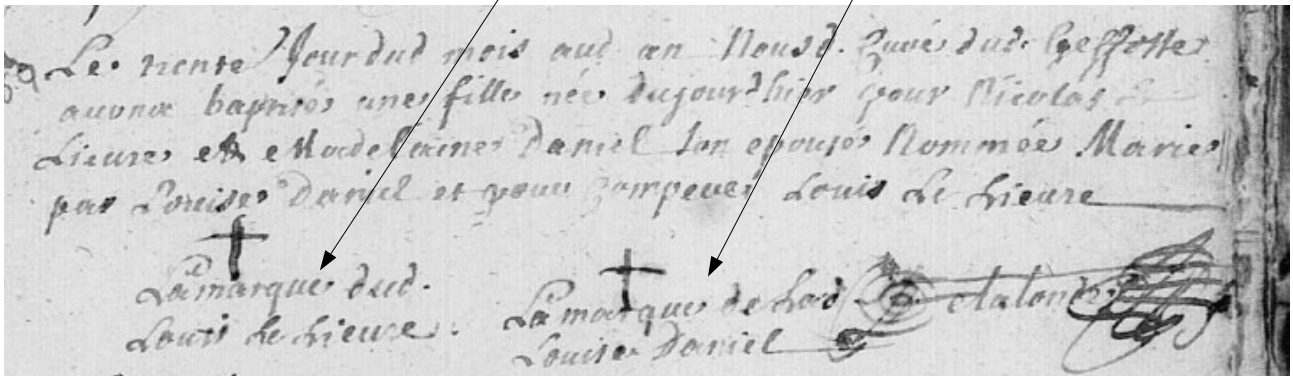 Le trente Jour dud mois aud an Nousd. Curé dud. Geffosse
avons baptisés une fille née dujourd'hier pour Nicolas Le
Lieure et Madelaine Daniel son epouse Nommée Marie
par Louise Daniel et pour Compere Louis Le Lieure
Lamarque dud. Lamarque de Lad
Louis Le Lieure. Louise Daniel